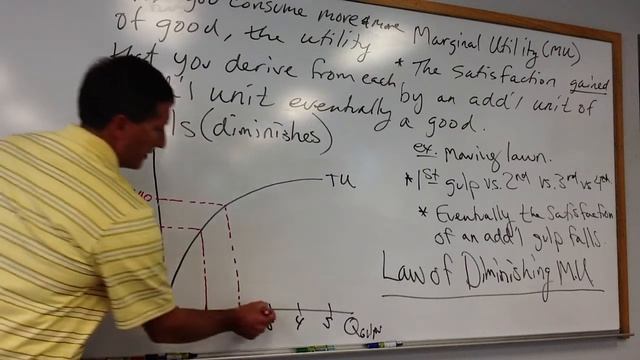 you consume more & more
of good, the utility
that you derive from each
add'l unit eventually
ls (diminishes)
Marginal Utility (MU)
* The Satisfaction gained
by an add'l unit of
a good.
ex. Mowing lawn.
* 1st gulp vs. 2nd vs. 3rd vs 4th
* Eventually the satisfaction
of an add'l gulp falls.
Law of Diminishing MU
TU
110
3 4 5 Qgulps